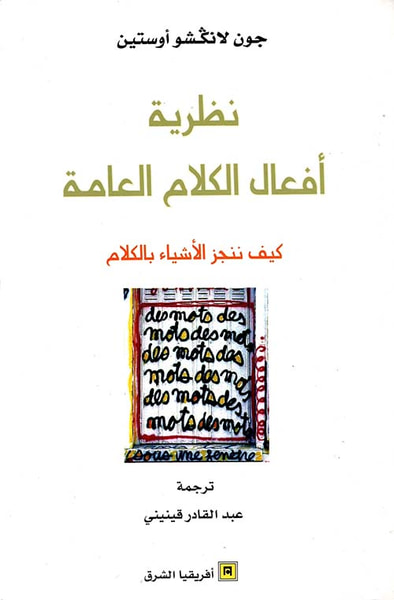 جون لانڭشو أوستين
نظرية
أفعال الكلام العامة
كيف ننجز الأشياء بالكلام
des mots des
mots des mots
des mots des
mots des mots
des mots des
mots des mots
sous une fenêtre
ترجمة
عبد القادر قينيني
أفريقيا الشرق